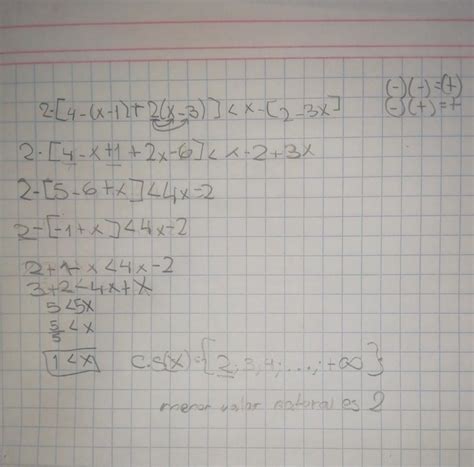 2-[4-(x-1)+2(x-3)]<x-[2-3x]
(-)(-)=(+)
(-)(+)=+
2-[4-x+1+2x-6]<x-2+3x
2-[5-6+x]<4x-2
2-[-1+x]<4x-2
2+1-x<4x-2
3+2<4x+x
5<5x
5/5<x
1<x
C.S(x)={2;3,4;...;+∞}
menor valor natural es 2